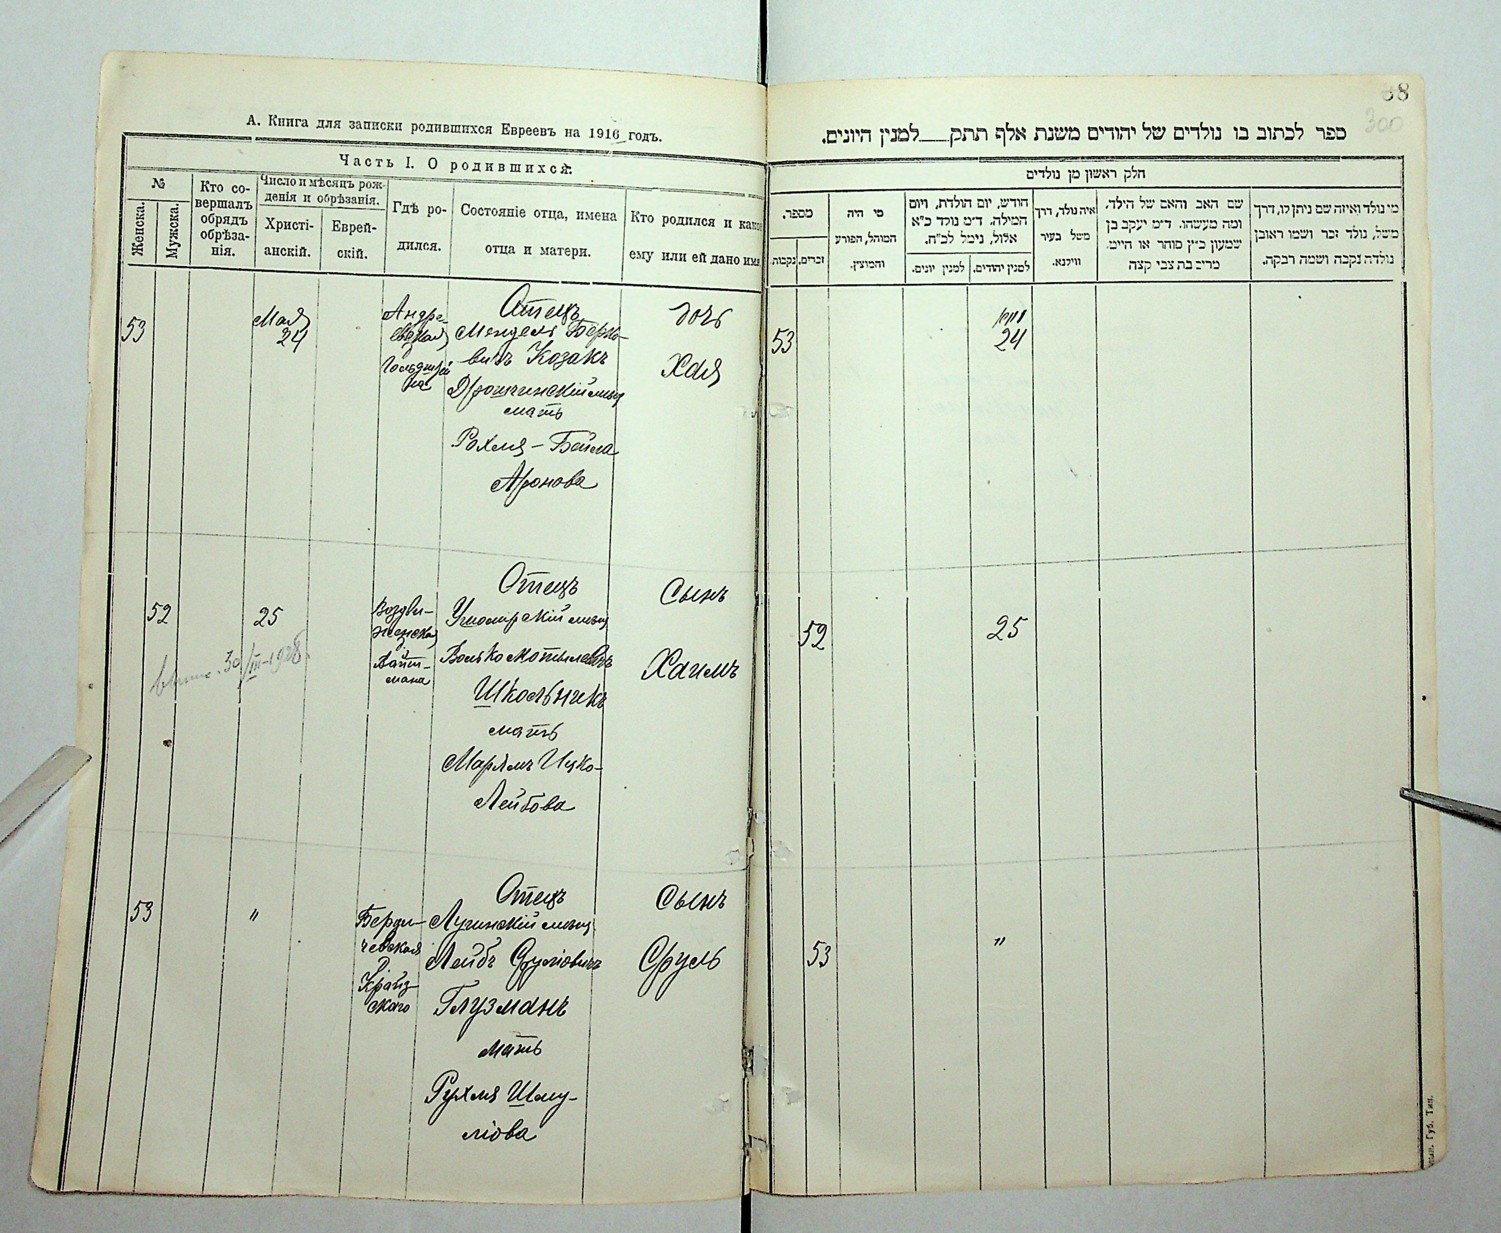 А. Книга для записки родившихся Евреевъ на 1916 годъ.
Часть I. О родившихся:
№
Женска.
Мужска.
Кто со-
вершалъ
обрядъ
обрѣза-
нія.
Число и мѣсяцъ рож-
денія и обрѣзанія.
Христі-
анскій.
Еврей-
скій.
Гдѣ ро-
дился.
Состояніе отца, имена
отца и матери.
Кто родился и какое
ему или ей дано имя
53
Мая
24
Андре-
евская
Отецъ
Мендель Берко-
вичъ Козакъ
мать
Рохля - Бейла
Аронова
дочь
Хая
52
25
Воздви-
женская
Отецъ
Ушомирскій мѣщ
Волько Мотелевичъ
Школьникъ
мать
Марьямъ Ицко-
Лейбова
Сынъ
Хаимъ
53
"
Берди-
чевская
Отецъ
Лугинскій мѣщ
Лейбъ Срулiовичъ
Глузманъ
мать
Рухля Шму-
лiова
Сынъ
Сруль
38
300
ספר לכתוב בו נולדים של יהודים משנת אלף תתק___למנין היונים.
חלק ראשון מן נולדים
מספר.
זכרים.
נקבות.
מי היה
המוהל, הפורע
והמוצץ.
חודש, יום הולדת, ויום
המילה. ד״מ נולד כ״א
אלול, נימל לכ״ח.
למנין יהודים.
למנין יונים.
איה נולד, דרך
משל בעיר
ווילנא.
שם האב והאם של הילד,
ומה מעשהו. ד״מ יעקב בן
שמעון כ״ץ סוחר או חייט.
מרים בת צבי קצה
מי נולד ואיזה שם ניתן לו, דרך
משל, נולד זכר ושמו ראובן
נולדה נקבה ושמה רבקה.
53
24
52
25
53
"
Губ. Тип.